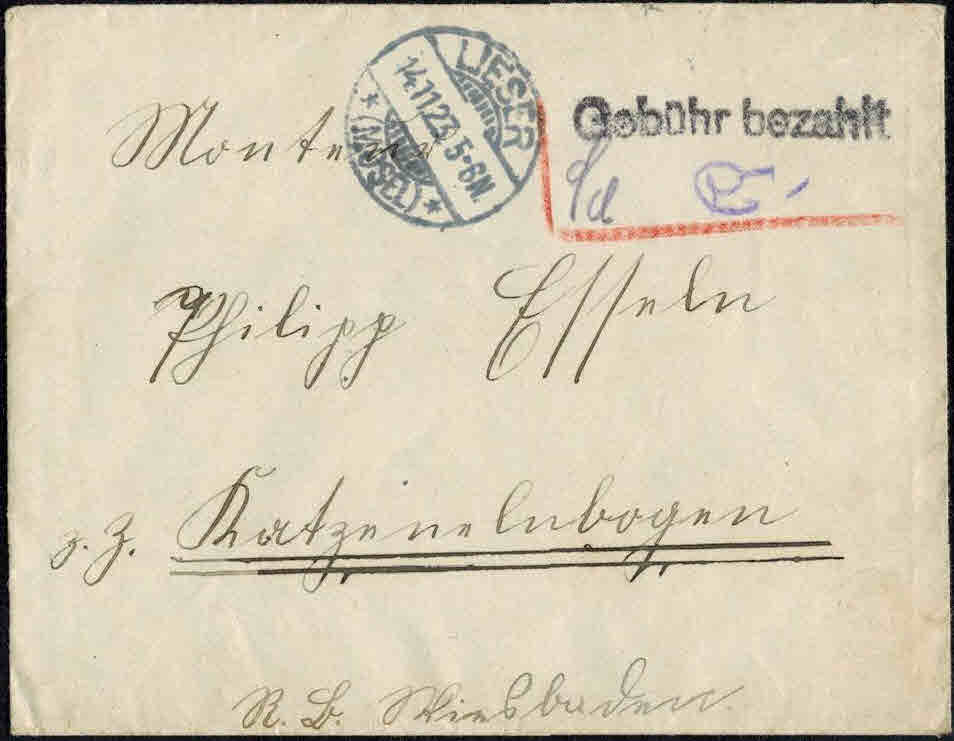 LIESER
14.11.23. 5-6N.
* (MOSEL) *
Gebühr bezahlt
Monteur
Philipp Esseln
z. Z. Katzenelnbogen
R. B. Wiesbaden.